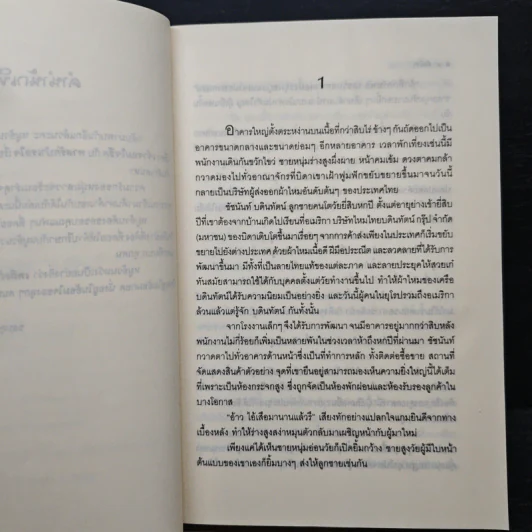 1
อาคารใหญ่ตั้งตระหง่านบนเนื้อที่กว่าสิบไร่ ข้างๆ กันถัดออกไปเป็น
อาคารขนาดกลางและขนาดย่อมๆ อีกหลายอาคาร เวลาพักเที่ยงเช่นนี้มี
พนักงานเดินกันขวักไขว่ ชายหนุ่มร่างสูงผึ่งผาย หน้าคมเข้ม ดวงตาคมกล้า
กวาดมองไปทั่วอาณาจักรที่บิดาเฝ้าฟูมฟักขยับขยายขึ้นมาจนวันนี้
กลายเป็นบริษัทผู้ส่งออกผ้าไหมอันดับต้นๆ ของประเทศไทย
ชัชนันท์ บดินทัศน์ ลูกชายคนโตวัยยี่สิบหกปี ตั้งแต่อายุย่างเข้ายี่สิบ
ปีที่เขาต้องจากบ้านเกิดไปเรียนที่อเมริกา บริษัทไหมไทยบดินทัศน์ กรุ๊ป จำกัด
(มหาชน) ของบิดาเติบโตขึ้นมาเรื่อยๆ จากการค้าส่งเพียงในประเทศก็เริ่มขยับ
ขยายไปยังต่างประเทศ ด้วยผ้าไหมเนื้อดี ฝีมือประณีต และลวดลายที่ได้รับการ
พัฒนาขึ้นมา มีทั้งที่เป็นลายไทยแท้ของแต่ละภาค และลายประยุกต์ให้สวยเก๋
ทันสมัยสามารถใช้ได้กับบุคคลตั้งแต่วัยทำงานขึ้นไป ทำให้ผ้าไหมของเครือ
บดินทัศน์ได้รับความนิยมเป็นอย่างยิ่ง และวันนี้ผู้คนในยุโรปรวมถึงอเมริกา
ล้วนแล้วแต่รู้จัก บดินทัศน์ กันทั้งนั้น
จากโรงงานเล็กๆ จึงได้รับการพัฒนา จนมีอาคารอยู่มากกว่าสิบหลัง
พนักงานไม่กี่ร้อยก็เพิ่มเป็นหลายพันในช่วงเวลาห้าถึงหกปีที่ผ่านมา ชัชนันท์
กวาดตาไปทั่วอาคารด้านหน้าซึ่งเป็นที่ทำการหลัก ทั้งติดต่อซื้อขาย สถานที่
จัดแสดงสินค้าตัวอย่าง จุดที่เขายืนอยู่สามารถมองเห็นความยิ่งใหญ่นี้ได้เต็ม
ที่เพราะเป็นห้องกระจกสูง ซึ่งถูกจัดเป็นห้องพักผ่อนและห้องรับรองลูกค้าใน
บางโอกาส
“อ้าว ไอ้เสือมานานแล้วรึ” เสียงทักอย่างแปลกใจแกมยินดีจากทาง
เบื้องหลัง ทำให้ร่างสูงสง่าหมุนตัวกลับมาเผชิญหน้ากับผู้มาใหม่
เพียงแค่ได้เห็นชายหนุ่มอ่อนวัยก็เปิดยิ้มกว้าง ชายสูงวัยผู้มีใบหน้า
ต้นแบบของเขาเองก็ยิ้มบางๆ ส่งให้ลูกชายเช่นกัน